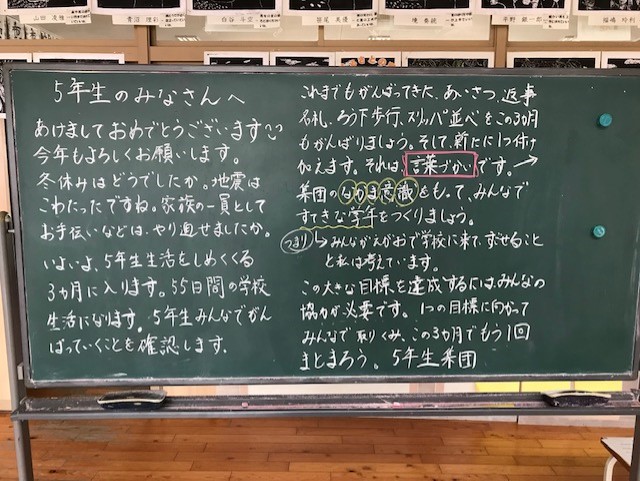 5年生のみなさんへ
あけましておめでとうございます
今年もよろしくお願いします。
冬休みはどうでしたか。地震は
こわかったですね。家族の一員として
お手伝いなどは、やり通せましたか。
いよいよ、5年生生活をしめくくる
3ヵ月に入ります。55日間の学校
生活になります。5年生みんなでがん
ばっていくことを確認します。
これまでもがんばってきた、あいさつ、返事
名札、ろう下歩行、スリッパ並べをこの3カ月
もがんばりましょう。そして、新たに1つ付け
加えます。それは、言葉づかいです。
集団の意識をもって、みんなで
すてきな学年をつくりましょう。
つまり みんながえがおで学校に来て、すごせること
と私は考えています。
この大きな目標を達成するには、みんなの
協力が必要です。1つの目標に向かって
みんなで取りくみ、この3カ月でもう1回
まとまろう。5年生集団